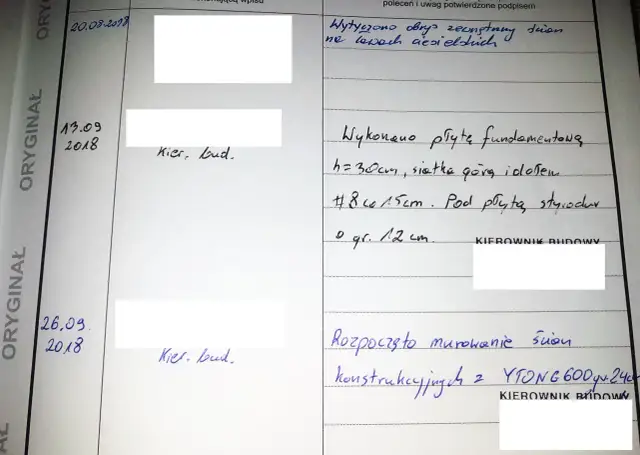 poleceń i uwag potwierdzone podpisem
ORYGINAŁ
20.08.2018
Wytyczono obrys zewnętrzny ścian
na ławach ciesielskich
13.09
2018
Kier. bud.
Wykonano płytę fundamentową
h=30cm, siatka górą i dołem
#8 co 15cm. Pod płytą styrodur
o gr. 12 cm.
KIEROWNIK BUDOWY
ORYGINAŁ
26.09.
2018
Kier. bud.
Rozpoczęto murowanie ścian
konstrukcyjnych z YTONG 600 gr. 24cm
KIEROWNIK BUDOWY